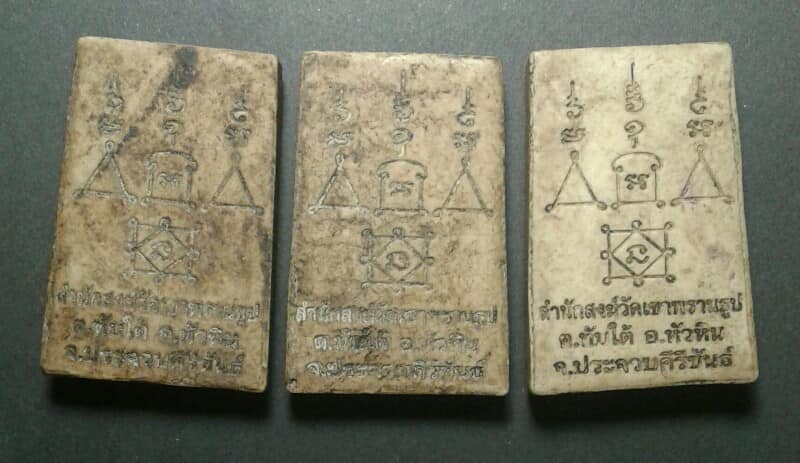 สำนักสงฆ์วัดเขากรานธูป
ต.ทับใต้ อ.หัวหิน
จ.ประจวบคีรีขันธ์
สำนักสงฆ์วัดเขากรานธูป
ต.ทับใต้ อ.หัวหิน
จ.ประจวบคีรีขันธ์
สำนักสงฆ์วัดเขากรานธูป
ต.ทับใต้ อ.หัวหิน
จ.ประจวบคีรีขันธ์